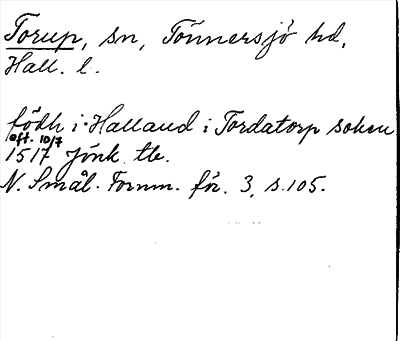 Torup, sn, Tönnersjö hd,
Hall. l.
född i Halland i Tordatorp soken
eft. 10/7
1517 Jönk. tb.
N. Smål. Fornm. för. 3, s.105.